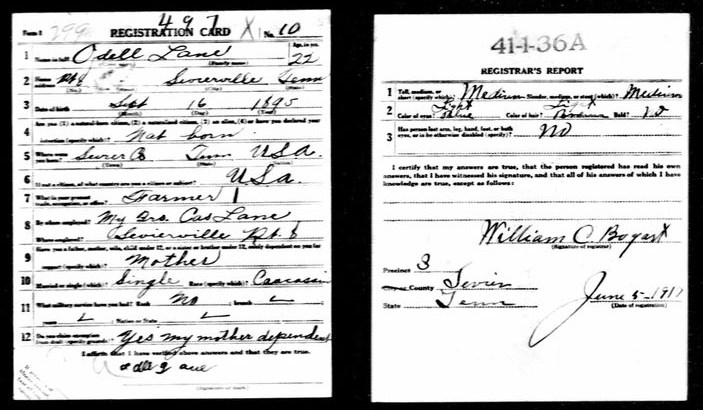 Form 1 299 497 X
REGISTRATION CARD No. 10
1 Name in full Odell Lane Age, in yrs. 22
(Given name) (Family name)
2 Home address Rt 8 Sevierville Tenn
(No.) (Street) (City) (State)
3 Date of birth Sept 16 1895
(Month) (Day) (Year)
4 Are you (1) a natural-born citizen, (2) a naturalized citizen, (3) an alien, (4) or have you declared your
intention (specify which)? Nat born
5 Where were you born? Sevier Co Tenn USA.
(Town) (State) (Nation)
6 If not a citizen, of what country are you a citizen or subject? USA.
7 What is your present trade, occupation, or office? Farmer 1
8 By whom employed? My Bro. Cas Lane
Where employed? Sevierville Rt. 8
9 Have you a father, mother, wife, child under 12, or a sister or brother under 12, solely dependent on you for
support (specify which)? Mother
10 Married or single (which)? Single Race (specify which)? Caucasian
11 What military service have you had? Rank No branch
years Nation or State
12 Do you claim exemption from draft (specify grounds)? Yes my mother dependent
I affirm that I have verified above answers and that they are true.
(Signature or mark)
41-1-36A
REGISTRAR'S REPORT
1 Tall, medium, or short (specify which)? Medium Slender, medium, or stout (which)? Medium
2 Color of eyes? Light Blue Color of hair? Light Brown Bald?
3 Has person lost arm, leg, hand, foot, or both
eyes, or is he otherwise disabled (specify)? No
I certify that my answers are true, that the person registered has read his own
answers, that I have witnessed his signature, and that all of his answers of which I have
knowledge are true, except as follows:
William C. Bogart
(Signature of registrar)
Precinct 3
City or County Sevier
State Tenn
June 5-1917
(Date of registration)